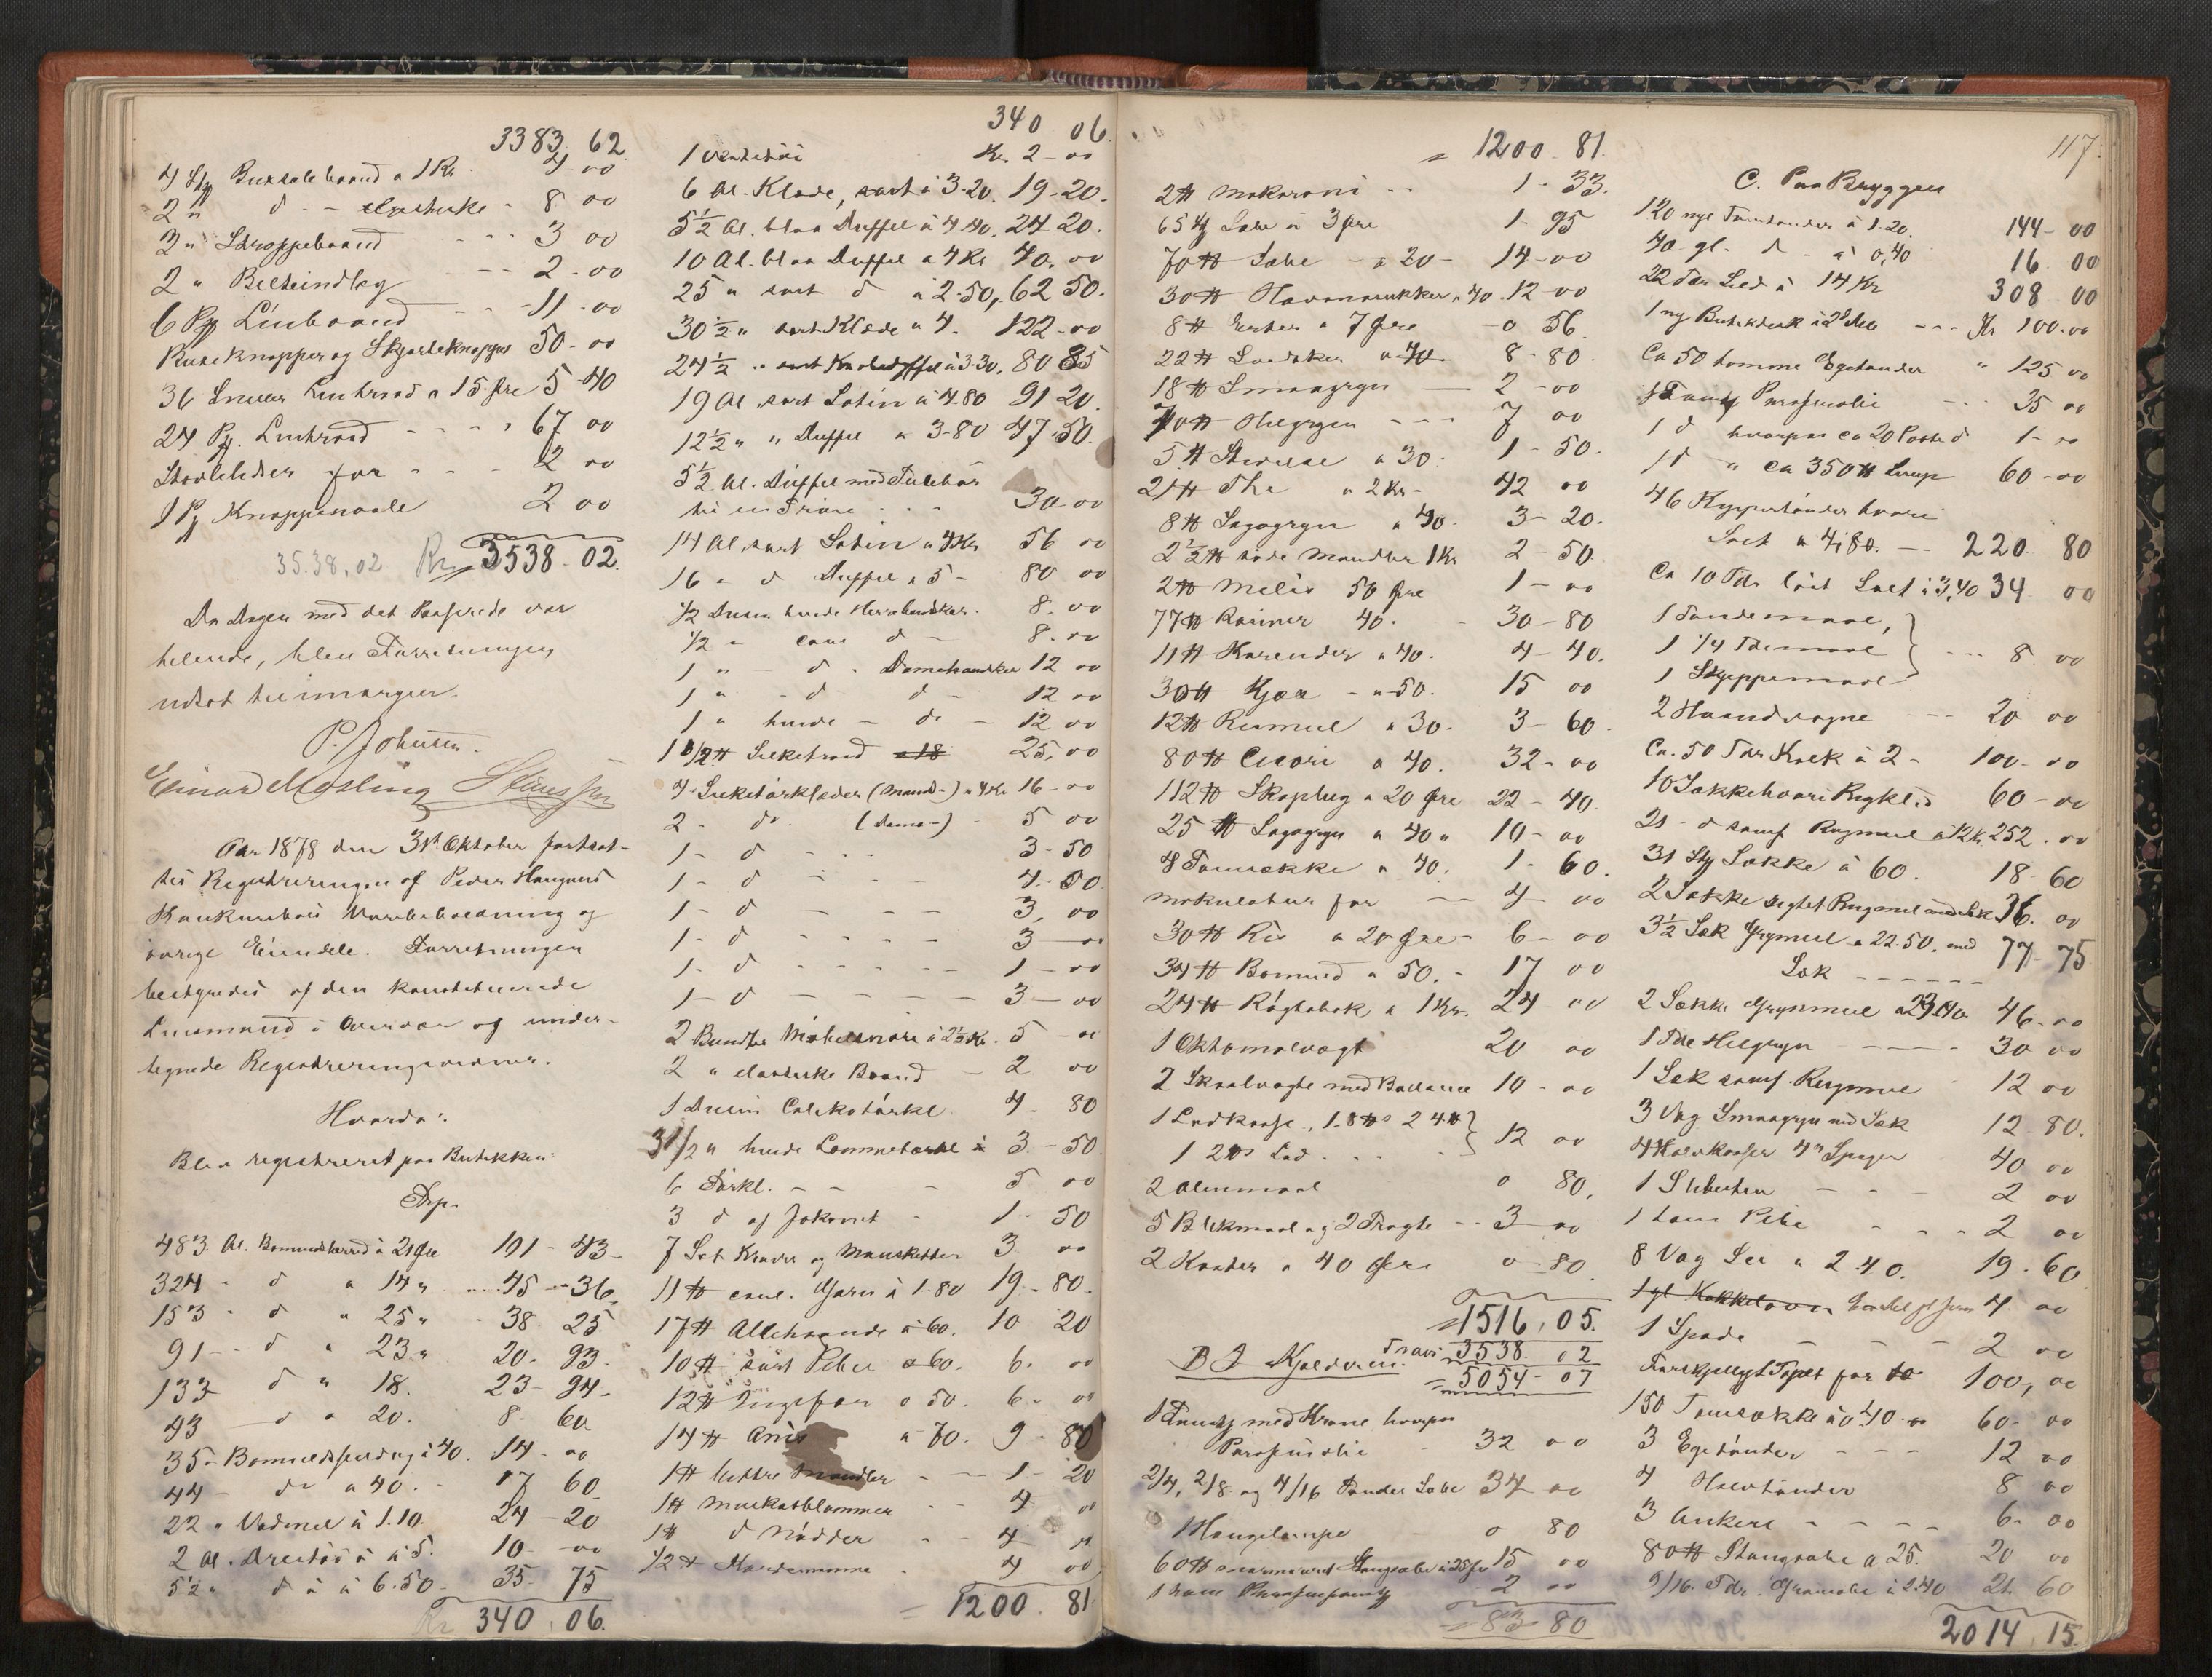 3383. 62.
4 Stk Buxsale baand a 1 Kr. 4 00
2 " d - elastiske - 8 00
3 " Stroppebaand - - - 3 00
2 " Belteindlæg - - - 2 - 00
6 Pk Linbaand - - 11 - 00
Buxeknapper og Skjorteknapper 50 - 00
36 Sneller Lintraad a 15 Øre 5 40
24 Pk. Lintraad - - - - 67 00
Støvlelidser for - - - - 2 00
1 Pk Knappenaale 2 00
35.38,02 Kr. 3538 - 02.
Da Dagen med det Passerede var
helende, blev Forretningen
udsat til imorgen.
P. Johnsen.
Einar Mosling
Aar 1878 den 31te Oktober fortsat-
tes Registreringen af Peder Haugans
Konkursbos Varebeholdning og
øvrige Eiendele. Forretningen
bestyredes af den konstituerede
Lensmand i Overvær af under-
tegnede Registreringsvidner.
Hvorda:
Blev registreret paa Butikken:
483 Al. Bomuldslærred à 21 Øre 101 - 43 -
324 - d a 14 " 45 - 36.
153 - d " 25 " - 38 25
91 - - d " 23 " 20 - 93.
133 d " 18. 23 - 94 -
43 - d a 20. 8 - 60
35 - Bomuldsfording à 40. 14 - 00
44 - do a 40. - 17 60
22 " Vadmel à 1.10. 24 - 20
2 Al. Dreitøi à 5. 10 - 00
5 1/2 " d à 6.50 - 35 - 75
Kr 340.06.
340 06.
1 Kr. 2 - 00
6 Al. Klæde, sort à 3.20. 19 - 20.
5 1/2 Al. blaa Duffel à 4.40. 24 20.
10 Al. blaa Duffel a 4 Kr 40. 00
25 " sort d à 2.50, 62 50.
30 1/2 " sort Klæde a 4. 122 - 00
24 1/2 " sort à 3.30. 80 85
19 Al. sort Satin à 4.80 91 20.
12 1/2 " " Duffel a 3 - 80 47 - 50.
5 1/2 Al. Duffel med Tilbehør
til en Trøie . . . 30 - 00
14 Al. sort Satin a 4 Kr 56 00
16 - d Duffel a 5 - 80 00
1/2 Dusin hvide Herrehandsker - 8. 00
1/2 - coul d - 8 - 00
1 " - d - Damehandsker 12 00
1 " - d d - 12 00
1 " hvide - do - 12 00
1 1/2 ℔ Silketraad a 18 25, 00
4 Silketørklæder (Mands-) a 4 Kr 16 - 00
2 - do. (Dame-) - 5 00
1 - d - - - 3 - 50
1 - d - - - 4 - 50
1 - d - - - - 3, 00
1 - d - - - - 3 - 00
1 - d - - - - - 1 - 00
1 - d - - - - - 3 - 00
2 Bundter Møbelsnore à 2 1/2 Kr. 5 - 00
2 " elastiske Baand - 2 00
1 Dusin Calikotørkl. 4 - 80
3 1/2 " hvide Lommetørkl à 3 - 50
6 Tørkl. - - - 5 00
3 d af Jakonet - 1 - 50
7 Set Kraver og Mansketter 3 00
11 ℔ coul. Garn à 1.80 19 - 80.
17 ℔ Allehaande à 60. 10 20
10 ℔ sort Peber a 60. 6. 00
12 ℔ Ingefær a 50. 6 - 00
14 ℔ Anis a 70. 9 - 80
1 ℔ bittre Mandler - - - 1 - 20
1 ℔ Muskatblommer - - 4 00
1 ℔ d Nødder - 4
1/2 ℔ Kardemomme - 4 00
= 1200.81.
= 1200 - 81.
2 ℔ Makaroni - - 1 - 33.
65 Stk Sæbe à 3 Øre 1 - 95
70 ℔ Sæbe - a 20 - 14 - 00
30 ℔ Havanasukker a 40. 12 - 00
8 ℔ Erter a 7 Øre - 0 56
22 ℔ a 40 8 - 80.
18 ℔ Smaagryn — 2 - 00
70 ℔ Helgryn - - - 7 00
5 ℔ Stivelse a 30. 1 - 50.
21 ℔ The a 2 Kr - 42 00
8 ℔ Sagogryn a 40 - 3 - 20.
2 1/2 ℔ søde Mandler 1 Kr 2 - 50.
2 ℔ Melis 50 Øre 1 - 00
77 ℔ Rosiner 40. - 30 - 80
11 ℔ Korender a 40. 4 - 40.
30 ℔ - a 50. 15 00
12 ℔ Rismel a 30. 3 - 60.
80 ℔ Cicori a 40. 32 - 00
112 ℔ Skraplug a 20 Øre 22 - 40.
25 ℔ Sagogryn a 40 " 10 - 00
4 Tomsække a 40. 1 - 60.
Makulatur for - - 4 - 00
30 ℔ Ris a 20 Øre - 6 - 00
34 ℔ Bomuld a 50. - 17 00
24 ℔ Røgtobak a 1 Kr. 24 00
1 Oktamalvægt 20 00
2 Skaalvægte med Ballance 10 - 00
1 Lodkasse, 1 - 8 ℔ 2 4 ℔ }
1 2 ℔ Lod . . . } 12 00
2 Alenmaal 0 80.
5 Blikmaal og 2 Tragte - - 3 - 00
2 Koster a 40 Øre 0 - 80
= 1516.05.
B I Kjelderen. Trans. 3538. 02
= 5054 - 07
1 med Krane hvorpaa
Parafinolie - 32 00
2/4, 2/8 og 4/16 Tønder Sæbe 34 00
1 Hængelampe - 0 80
60 ℔ marmoreret Stangsæbe à 25 Øre 15 00
1 tom 2 00
= 83 80
117.
C. Paa Bryggen
120 nye Tomtønder à 1.20. 144 - 00
40 gl. d - à 0,40 16. 00
22 Tdr Sild à 14 Kr 308 00
1 ny Butikdisk i 2 Dele - - - Kr 100.00
Ca 50 tomme Egetønder " 125 00
Parafinolie - - - 35 00
1 d hvorpaa ca 20 Potter d 1 - 00
1 d " ca 350 ℔ Sirup 60 - 00
46 Kyppertønder hvori
Salt a 4,80. - - 220. 80
Ca 10 Tdr løst Salt à 3,40 34 00
1 Tøndemaal, }
1 1/4 Tdemaal } - - - 8. 00
1 Skjeppemaal }
2 Haandvogne - - 20 00
Ca. 50 Tdr Kalk à 2 - 100 - 00
10 Sækkehvori Rugklid 60 - 00
21 - d samf Rugmel à 12 Kr. 252. 00
31 Stk Sække à 60. 18 - 60
2 Sække sigtet Rugmel med Sæk 36. 00
3 1/2 Sæk Grynmel a 22.50. med 77 - 75
Sæk - - - - -
2 Sække Grynmel a 46 - 00
1 Tde Helgryn - - - - 30 00
1 Sæk samf. Rugmel 12 00
3 Vog Smaagryn med Sæk 12 80.
40 00
1 Slibesten - - - 2 00
1 tom Pibe - - - 2 00
8 Vog a 2.40. 19 - 60
1 gl Kakkelovn 4 00
1 Spade - - - 2 00
Forskjelligt Tapet for 100, 00
150 Tomsække à 0.40 60 - 00
3 Egetønder - - - 12 00
4 Halvtønder 8 00
3 Ankere - - - - 6 - 00
80 ℔ Stangsæbe a 25. 20 00
9/16 Tdr. Grønsæbe à 2.40 21. 60
2014.15.